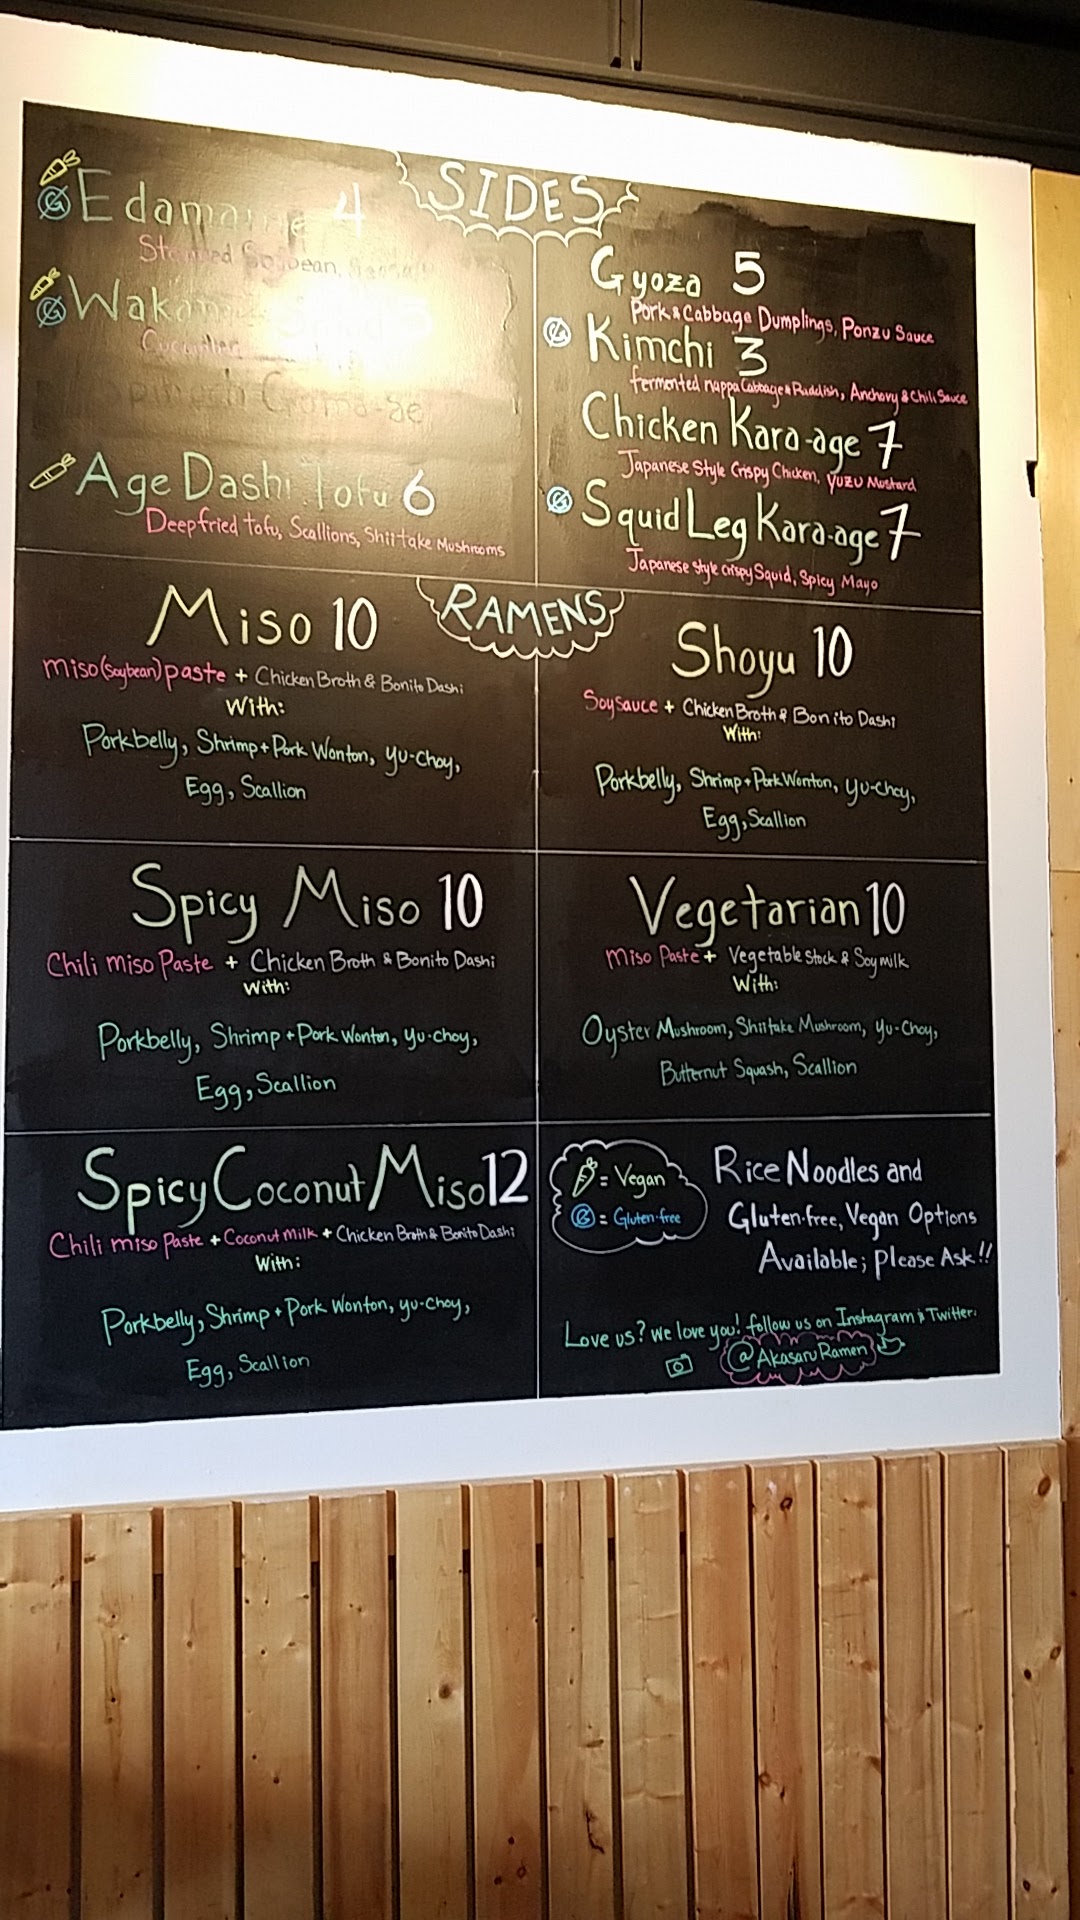 SIDES
Edamame 4
Steamed Soybean,
Age Dashi Tofu 6
Deepfried tofu, Scallions, Shiitake Mushrooms
Gyoza 5
Pork & Cabbage Dumplings, Ponzu Sauce
Kimchi 3
fermented nappa Cabbage & Raddish, Anchovy & Chili Sauce
Chicken Kara-age 7
Japanese Style Crispy Chicken, Yuzu Mustard
Squid Leg Kara-age 7
Japanese style crispy Squid, Spicy Mayo
RAMENS
Miso 10
miso (soybean) paste + Chicken Broth & Bonito Dashi
With:
Porkbelly, Shrimp + Pork Wonton, Yu-choy,
Egg, Scallion
Shoyu 10
Soysauce + Chicken Broth & Bonito Dashi
With:
Porkbelly, Shrimp + Pork Wonton, Yu-choy,
Egg, Scallion
Spicy Miso 10
Chili miso Paste + Chicken Broth & Bonito Dashi
With:
Porkbelly, Shrimp + Pork Wonton, Yu-choy,
Egg, Scallion
Vegetarian 10
Miso Paste + Vegetable Stock & Soy milk
With:
Oyster Mushroom, Shiitake Mushroom, Yu-Choy,
Butternut Squash, Scallion
Spicy Coconut Miso 12
Chili miso Paste + Coconut Milk + Chicken Broth & Bonito Dashi
With:
Porkbelly, Shrimp + Pork Wonton, Yu-choy,
Egg, Scallion
= Vegan
G = Gluten-free
Rice Noodles and
Gluten-free, Vegan Options
Available; please Ask!!
Love us? we love you! follow us on Instagram & Twitter:
@AkasaruRamen